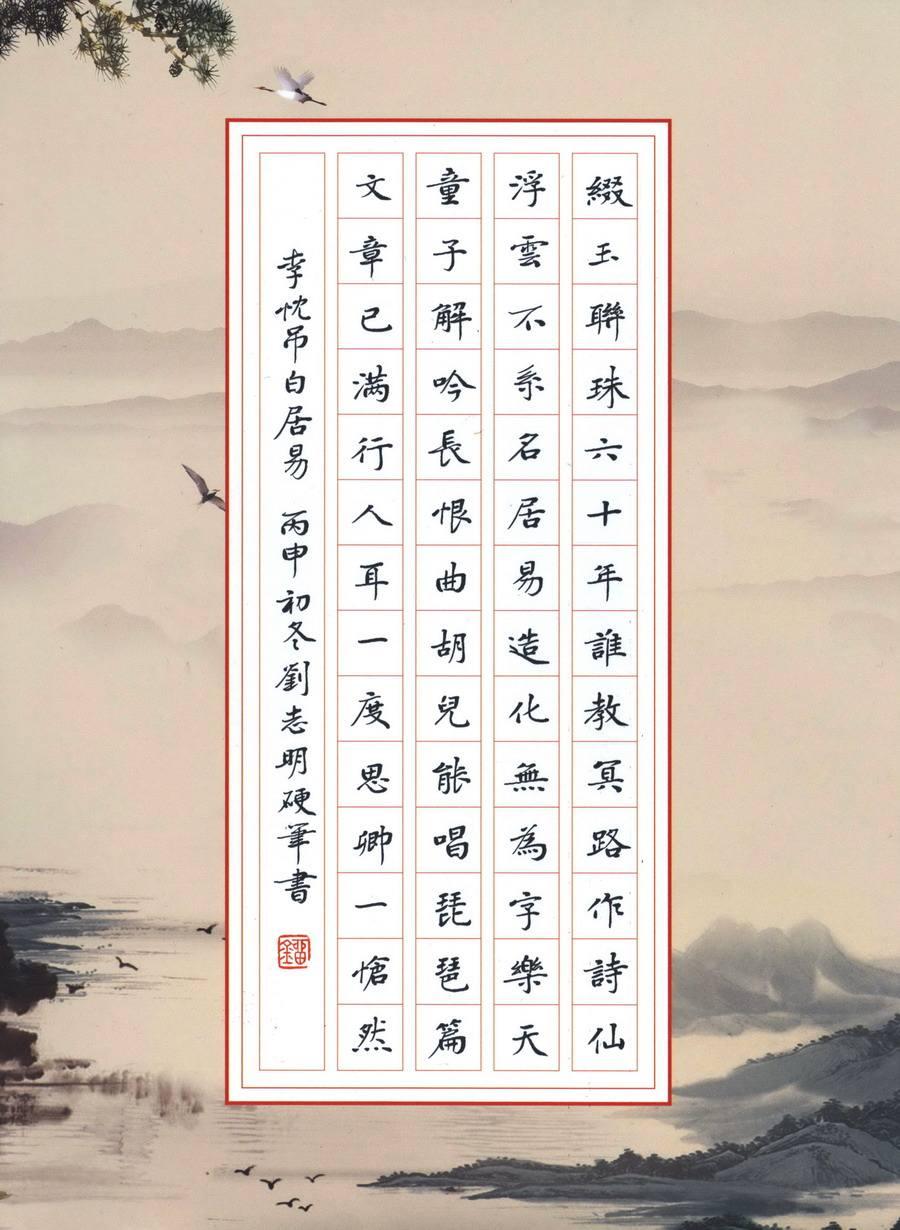 綴玉聯珠六十年誰教冥路作詩仙
浮雲不系名居易造化無為字樂天
童子解吟長恨曲胡兒能唱琵琶篇
文章已满行人耳一度思卿一愴然
李忱吊白居易 丙申初冬劉志明硬筆書